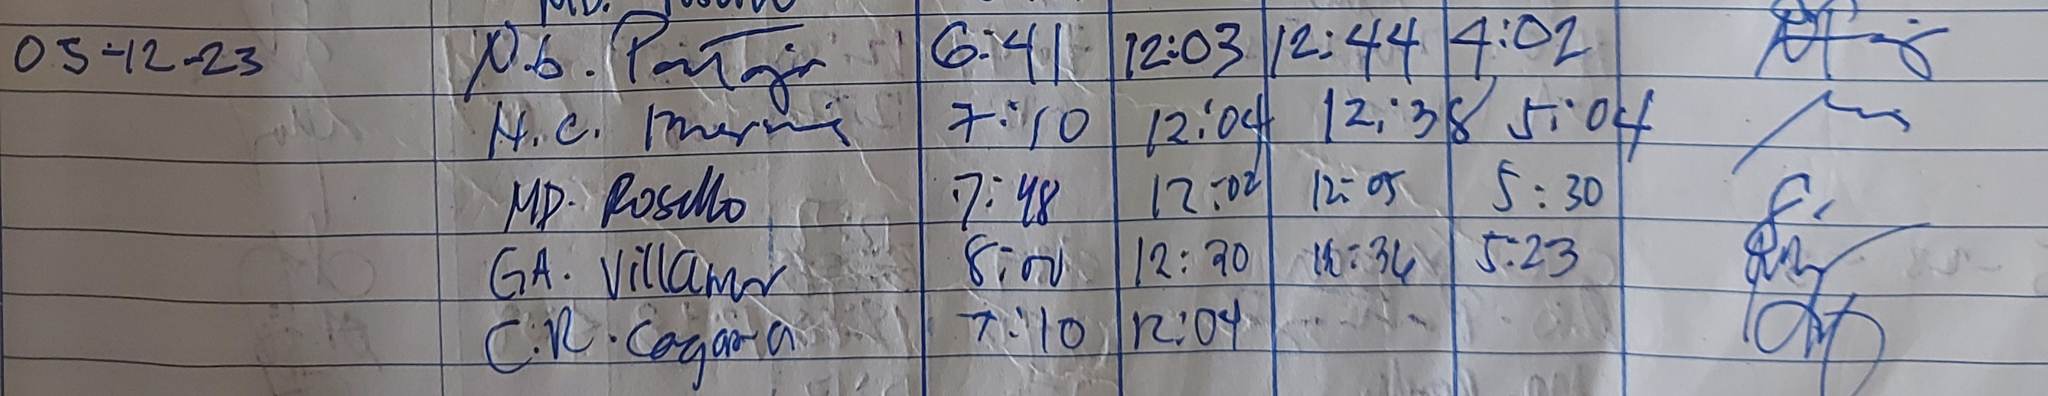 05-12-23 N.b. 6:41 12:03 12:44 4:02
H.C. 7:10 12:04 12:38 5:04
MD. Rosello 7:48 12:02 12:05 5:30
GA. Villamor 8:00 12:30 12:36 5:23
C.R. Cagara 7:10 12:04